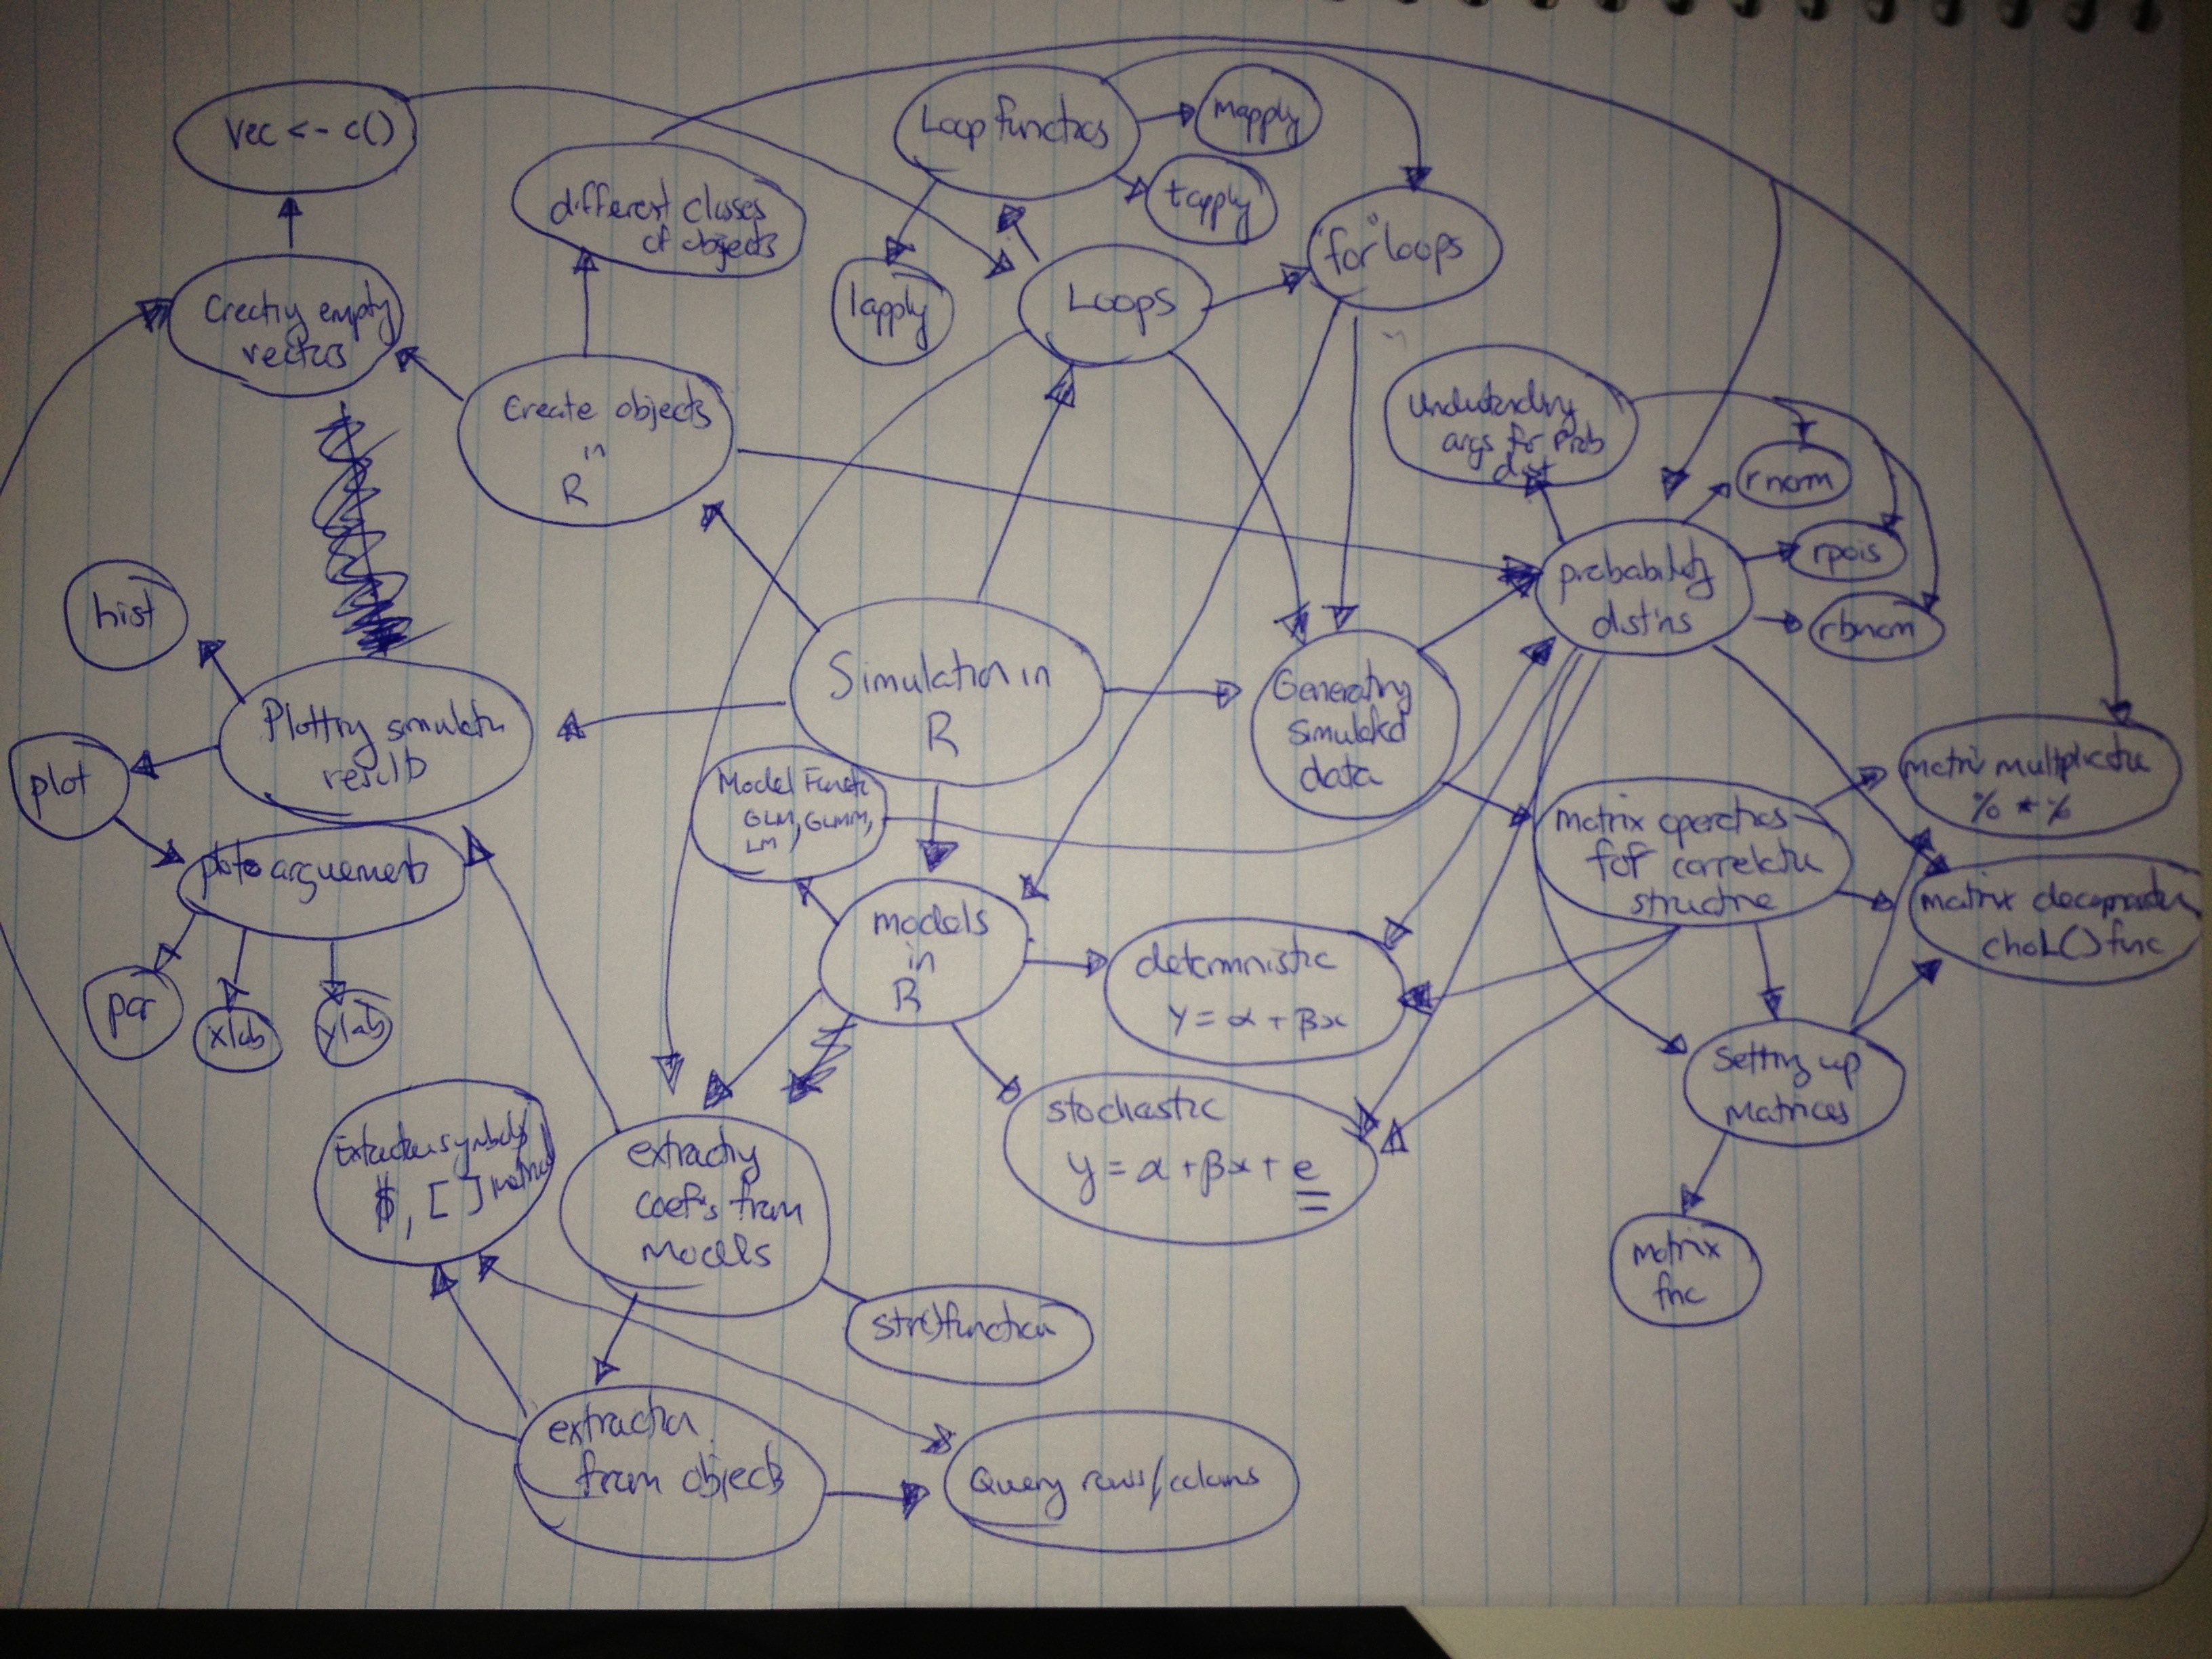 Vec <- c()
Loop functios
mapply
tapply
different classes
of objects
"for" loops
lapply
Loops
Creatig empty
vectors
Create objects
in
R
Understanding
args for Prob
dist
rnorm
rpois
rbinom
probability
distins
hist
Simulation in
R
Generating
simulated
data
Plotting simulatn
results
plot
Model Functi
GLM, GLMM,
LM
matrix multiplicatn
% * %
matrix operatios
for correlatn
structure
plots arguements
models
in
R
matrix
chol() func
deterministic
Y = α + βx
par
xlab
ylab
Setting up
Matrices
stochastic
y = α + βx + e
symbols
$, [ ]
extractig
coef's from
Models
matrix
fnc
str() function
extraction
from objects
Query rows/colums